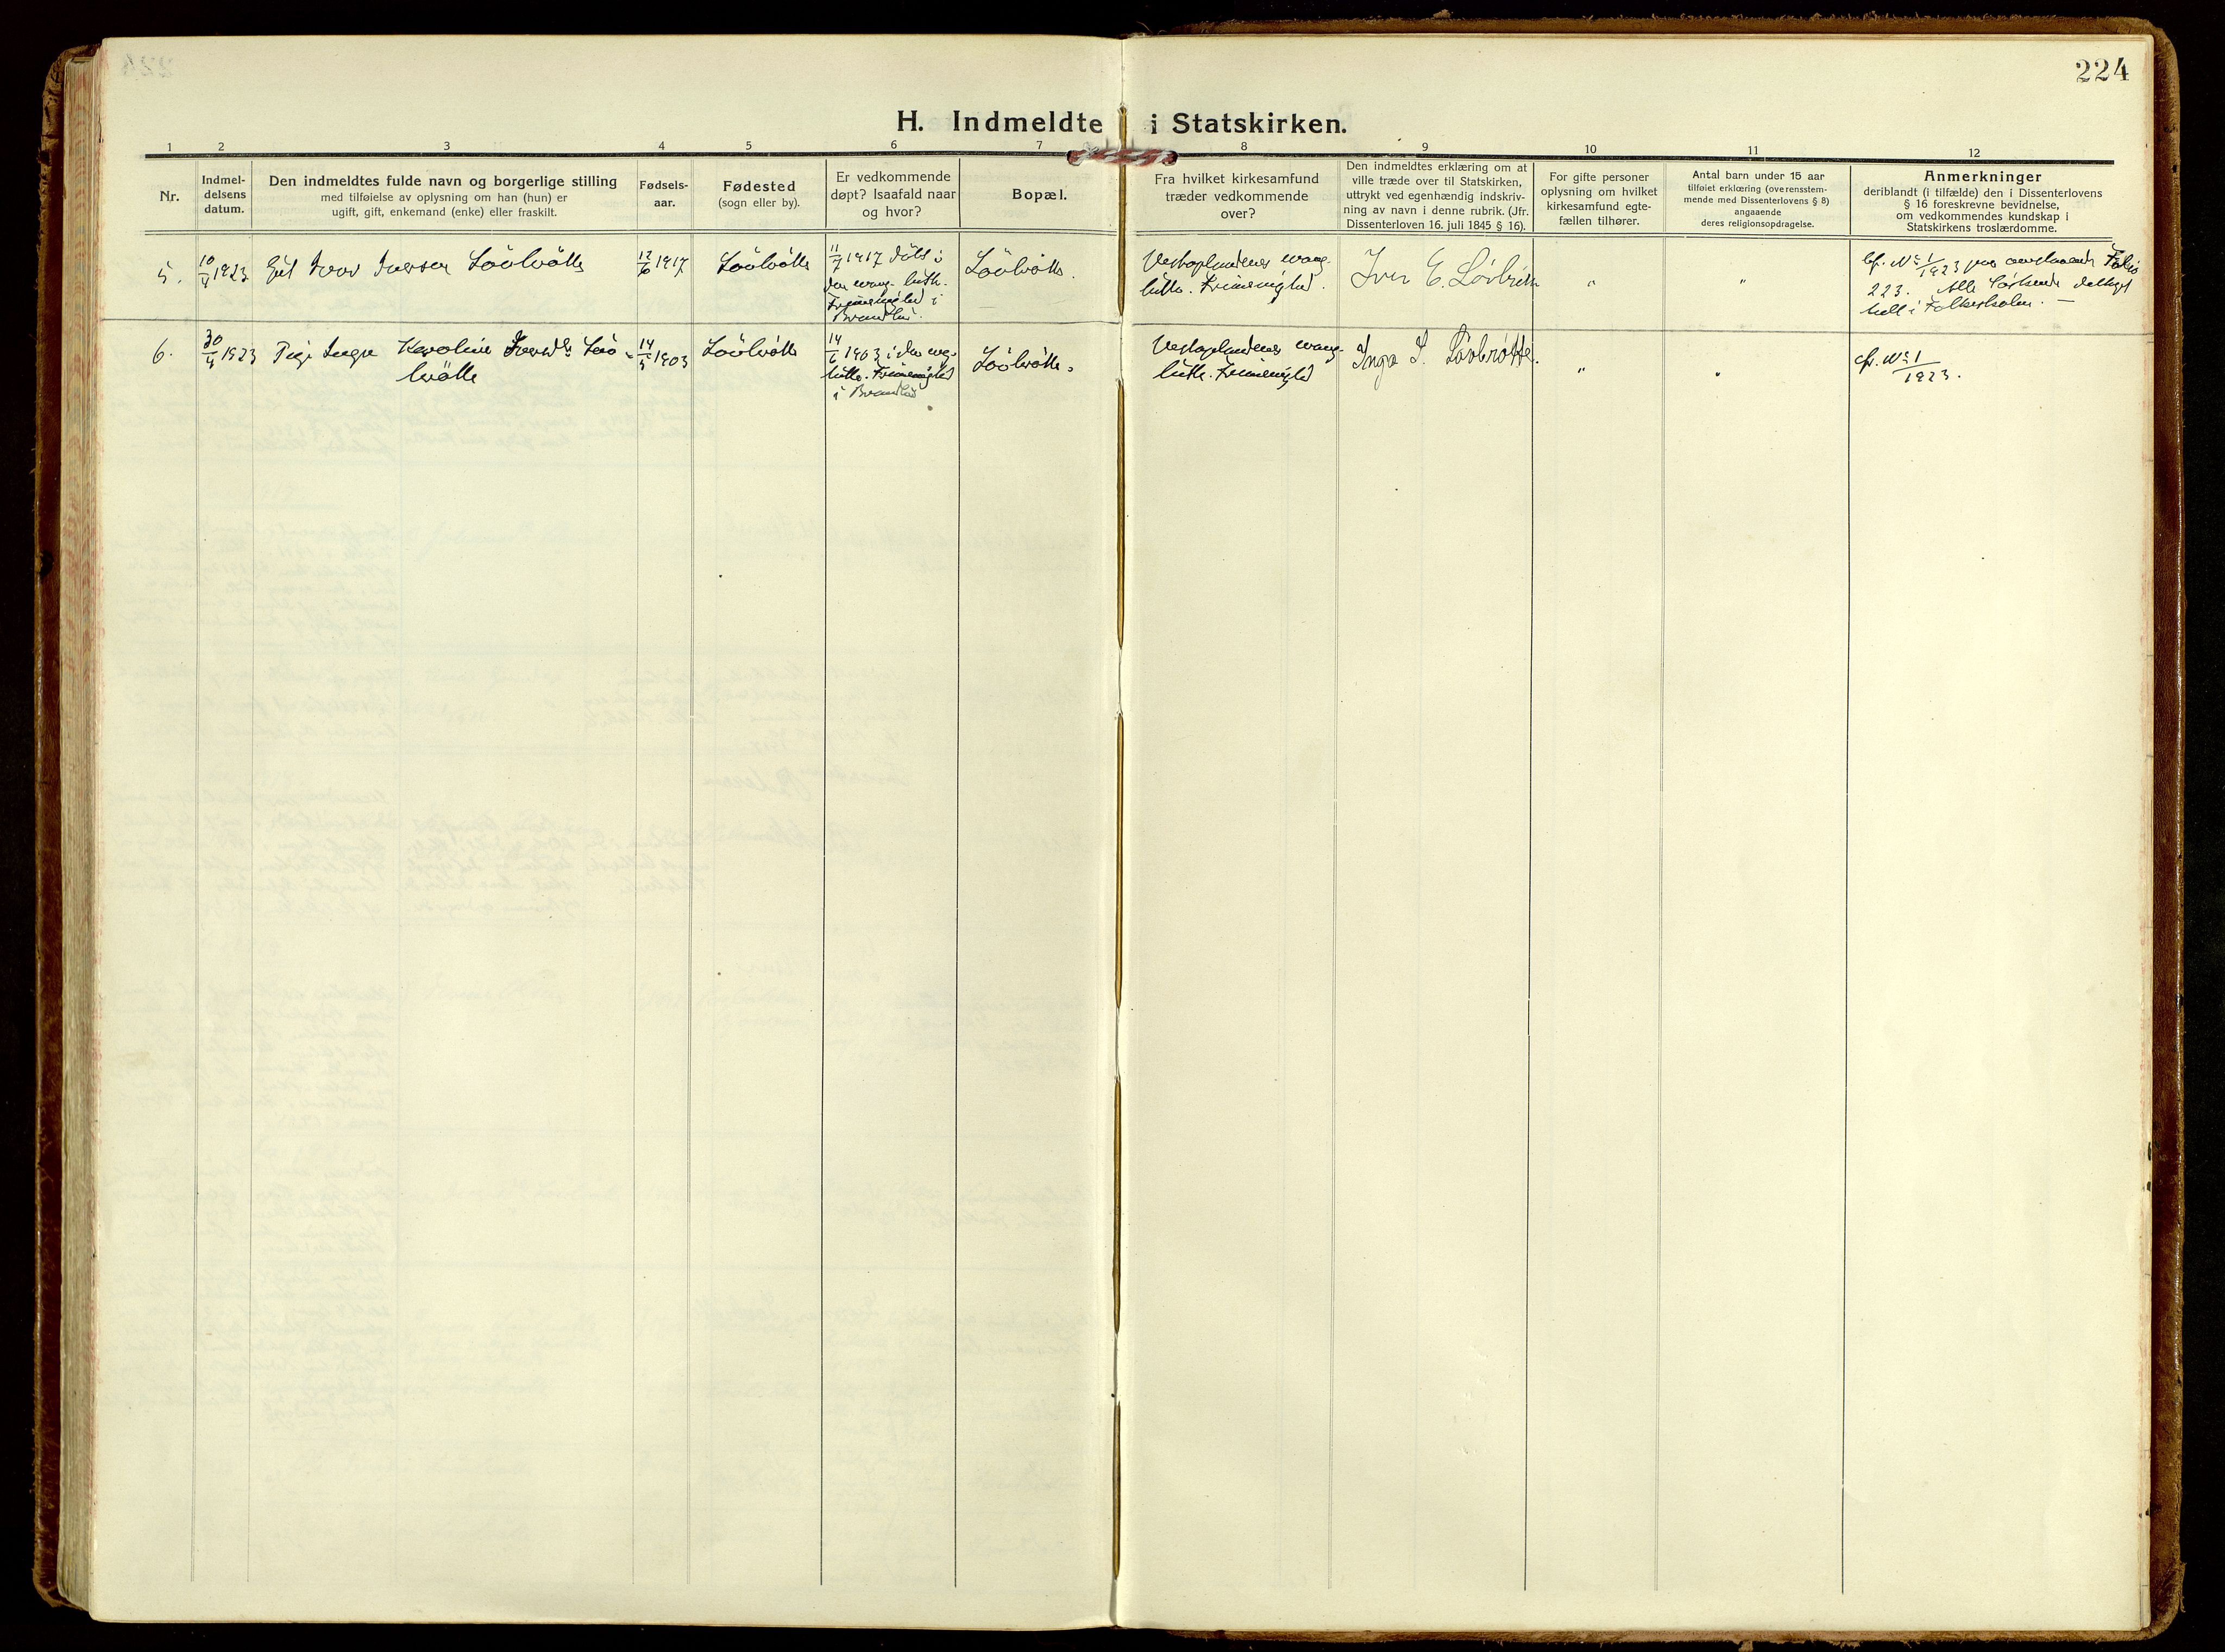 224
H. Indmeldte i Statskirken.
1 2 3 4 5 6 7 8 9 10 11 12
Nr.
Indmel-
delsens
datum.
Den indmeldtes fulde navn og borgerlige stilling
med tilføielse av oplysning om han (hun) er
ugift, gift, enkemand (enke) eller fraskilt.
Fødsels-
aar.
Fødested
(sogn eller by).
Er vedkommende
døpt? Isaafald naar
og hvor?
Bopæl.
Fra hvilket kirkesamfund
træder vedkommende
over?
Den indmeldtes erklæring om at
ville træde over til Statskirken,
uttrykt ved egenhændig indskriv-
ning av navn i denne rubrik. (Jfr.
Dissenterloven 16. juli 1845 § 16).
For gifte personer
oplysning om hvilket
kirkesamfund egte-
fællen tilhører.
Antal barn under 15 aar
tilføiet erklæring (overensstem-
mende med Dissenterlovens § 8)
angaaende
deres religionsopdragelse.
Anmerkninger
deriblandt (i tilfælde) den i Dissenterlovens
§ 16 foreskrevne bevidnelse,
om vedkommendes kundskap i
Statskirkens troslærdomme.
5.
10/4 1923
Gut Iver Iversen Lövbrötte
12/6 1917
Lövbrötte
11/7 1917 döbt i
den evang. luth.
Frimenighed i
Brandbu.
Lövbrötte.
Vestoplandenes evang.
luth. Frimenighed.
Iver E. Lövbrött
"
"
Cfr. No 1/1923 paa ovenstaaende Folio
223. Alle Söskende deltaget
i Folkeskolen. —
6.
30/4 1923
Pige Inga Karoline Iversdtr Löv-
brötte
14/5 1903
Lövbrötte
14/6 1903 i den evg.
luth. Frimenighed
i Brandbu
Lövbrötte.
Vestoplandenes evang.
luth. Frimenighed
Inga I. Lövbrötte.
"
"
cfr. No 1/1923.